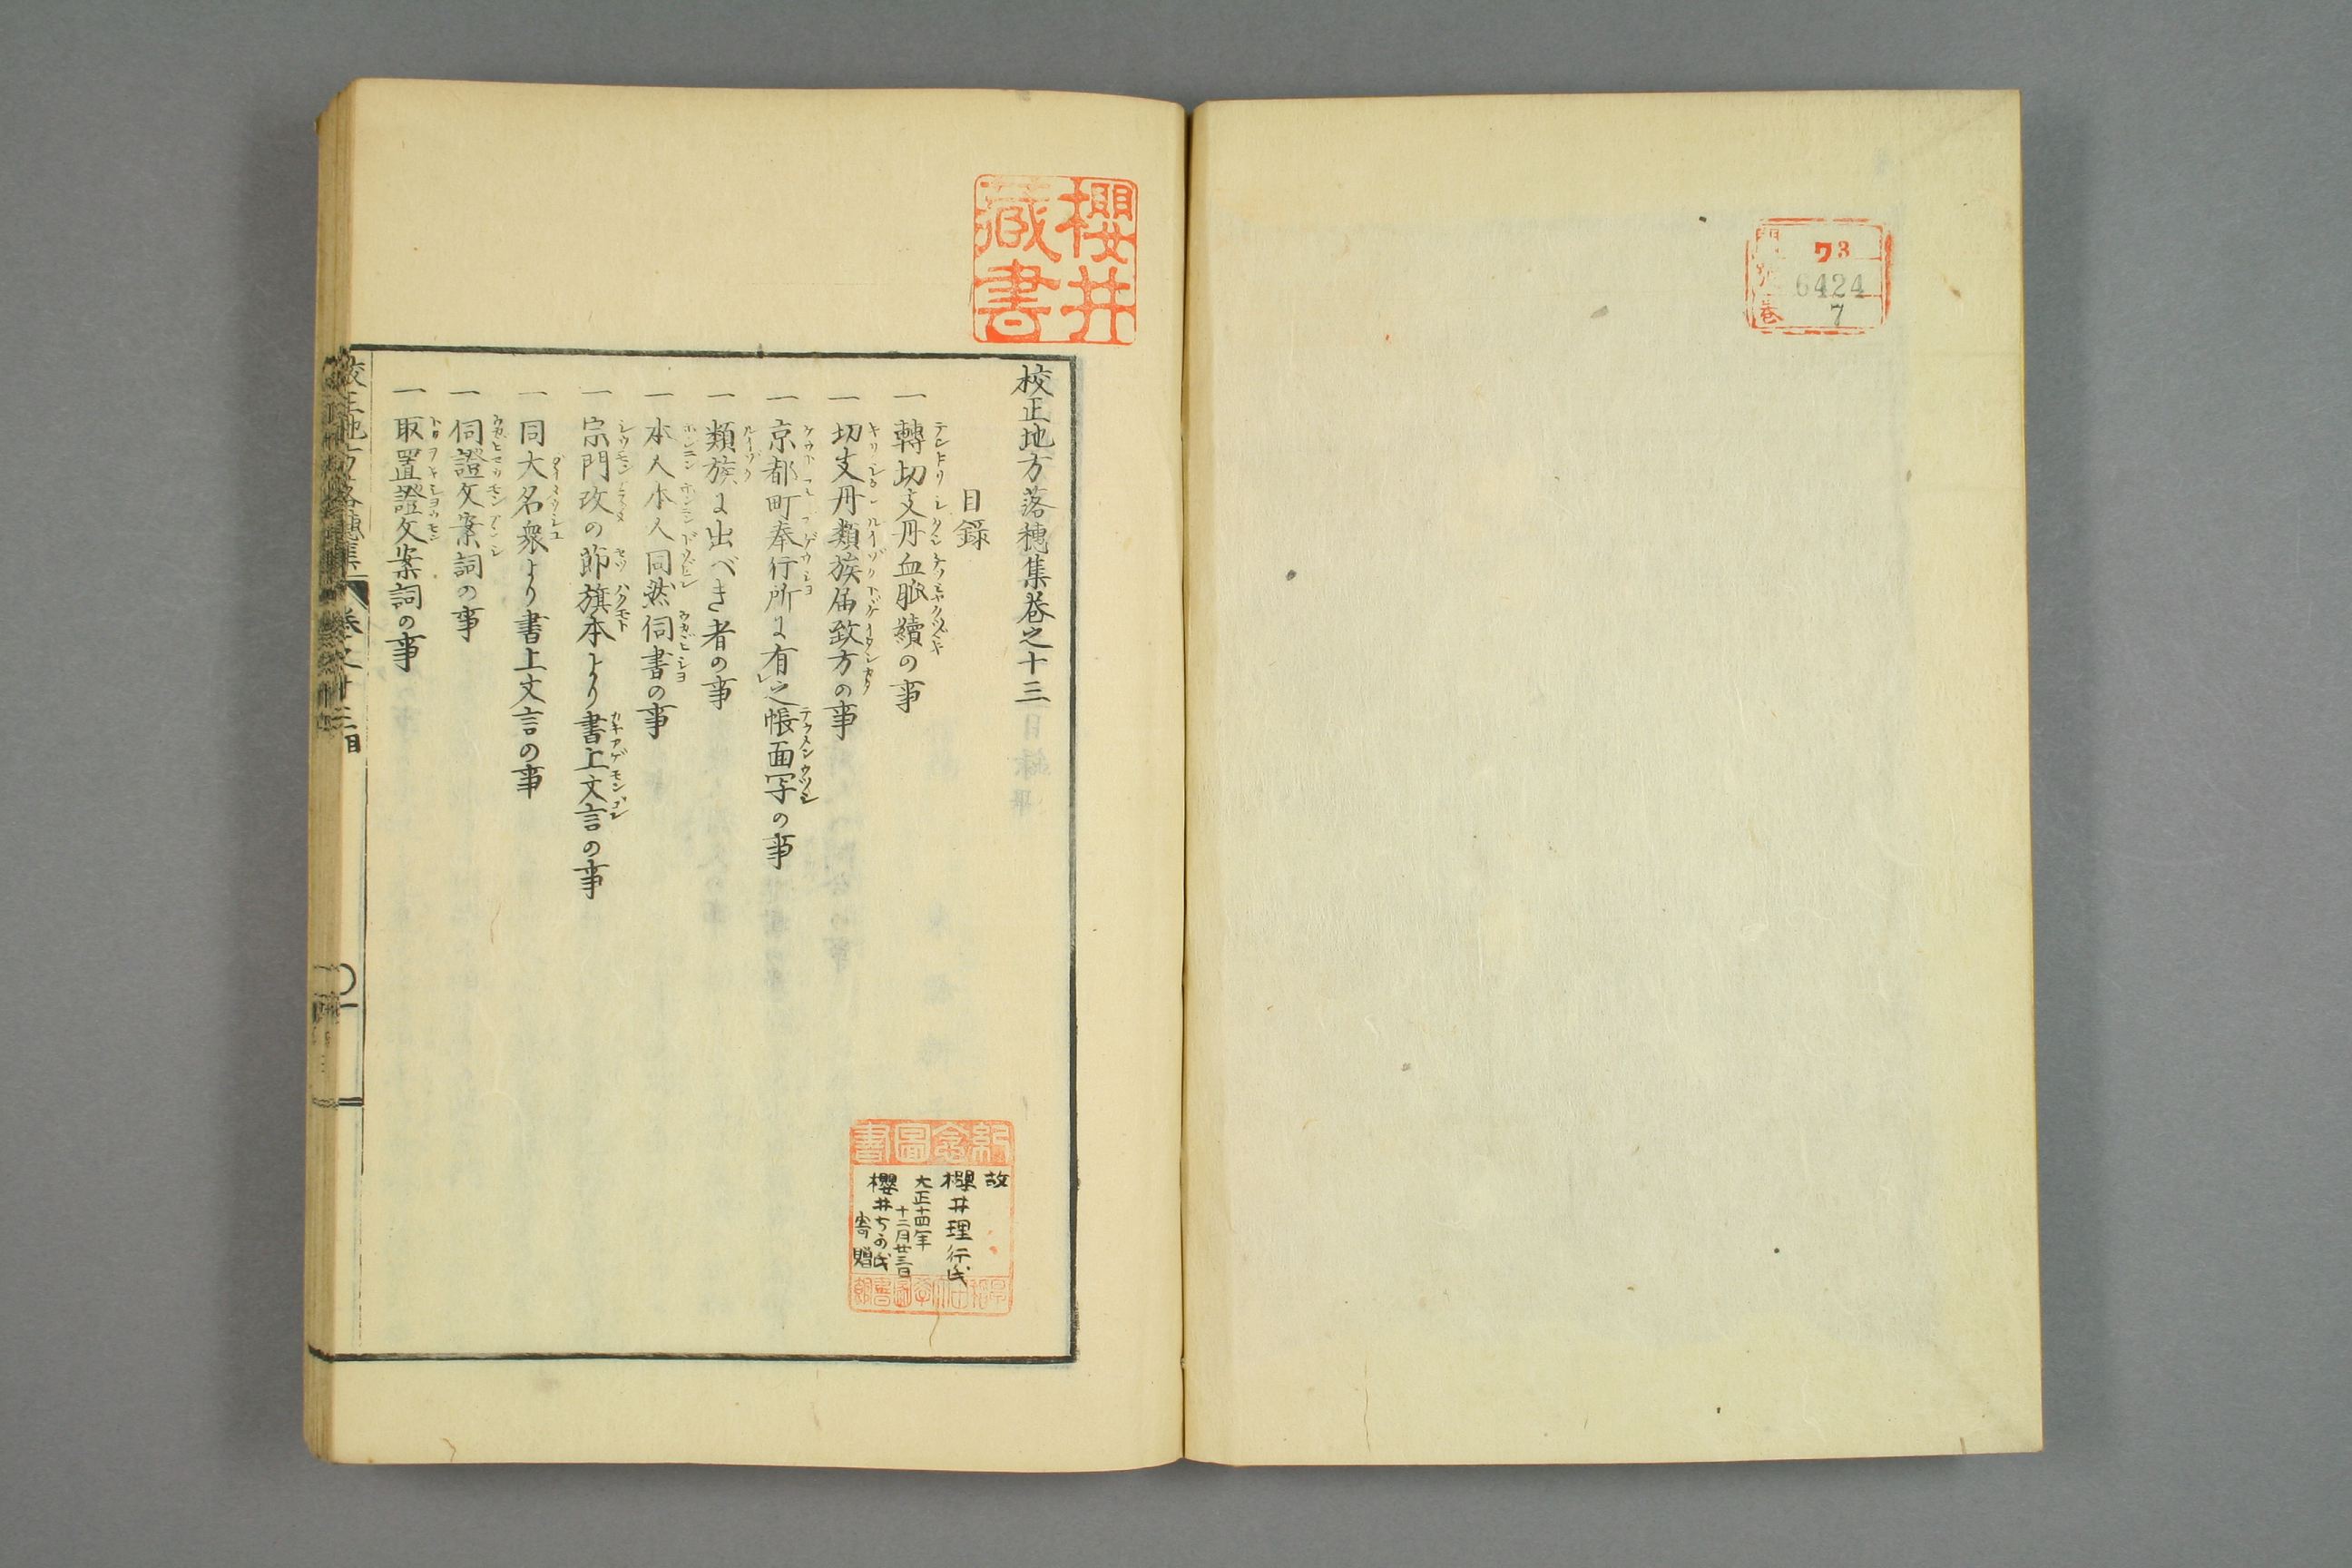 門 ヲ3
號 6424
巻 7
櫻井
藏書
校正地方落穗集巻之十三
目録
一轉切支丹血脈續の事
一切支丹類族届致方の事
一京都町奉行所ニ有㆑之帳面写の事
一類族ニ出べき者の事
一本人本人同然伺書の事
一宗門改の節旗本より書上文言の事
一同大名衆より書上文言の事
一伺證文案詞の事
一取置證文案詞の事
紀念圖書
故
櫻井理行氏
大正十四年
十二月廿三日
櫻井ちか氏
寄贈
早稲田大學圖書館
校正地方落穗集 巻之十三目